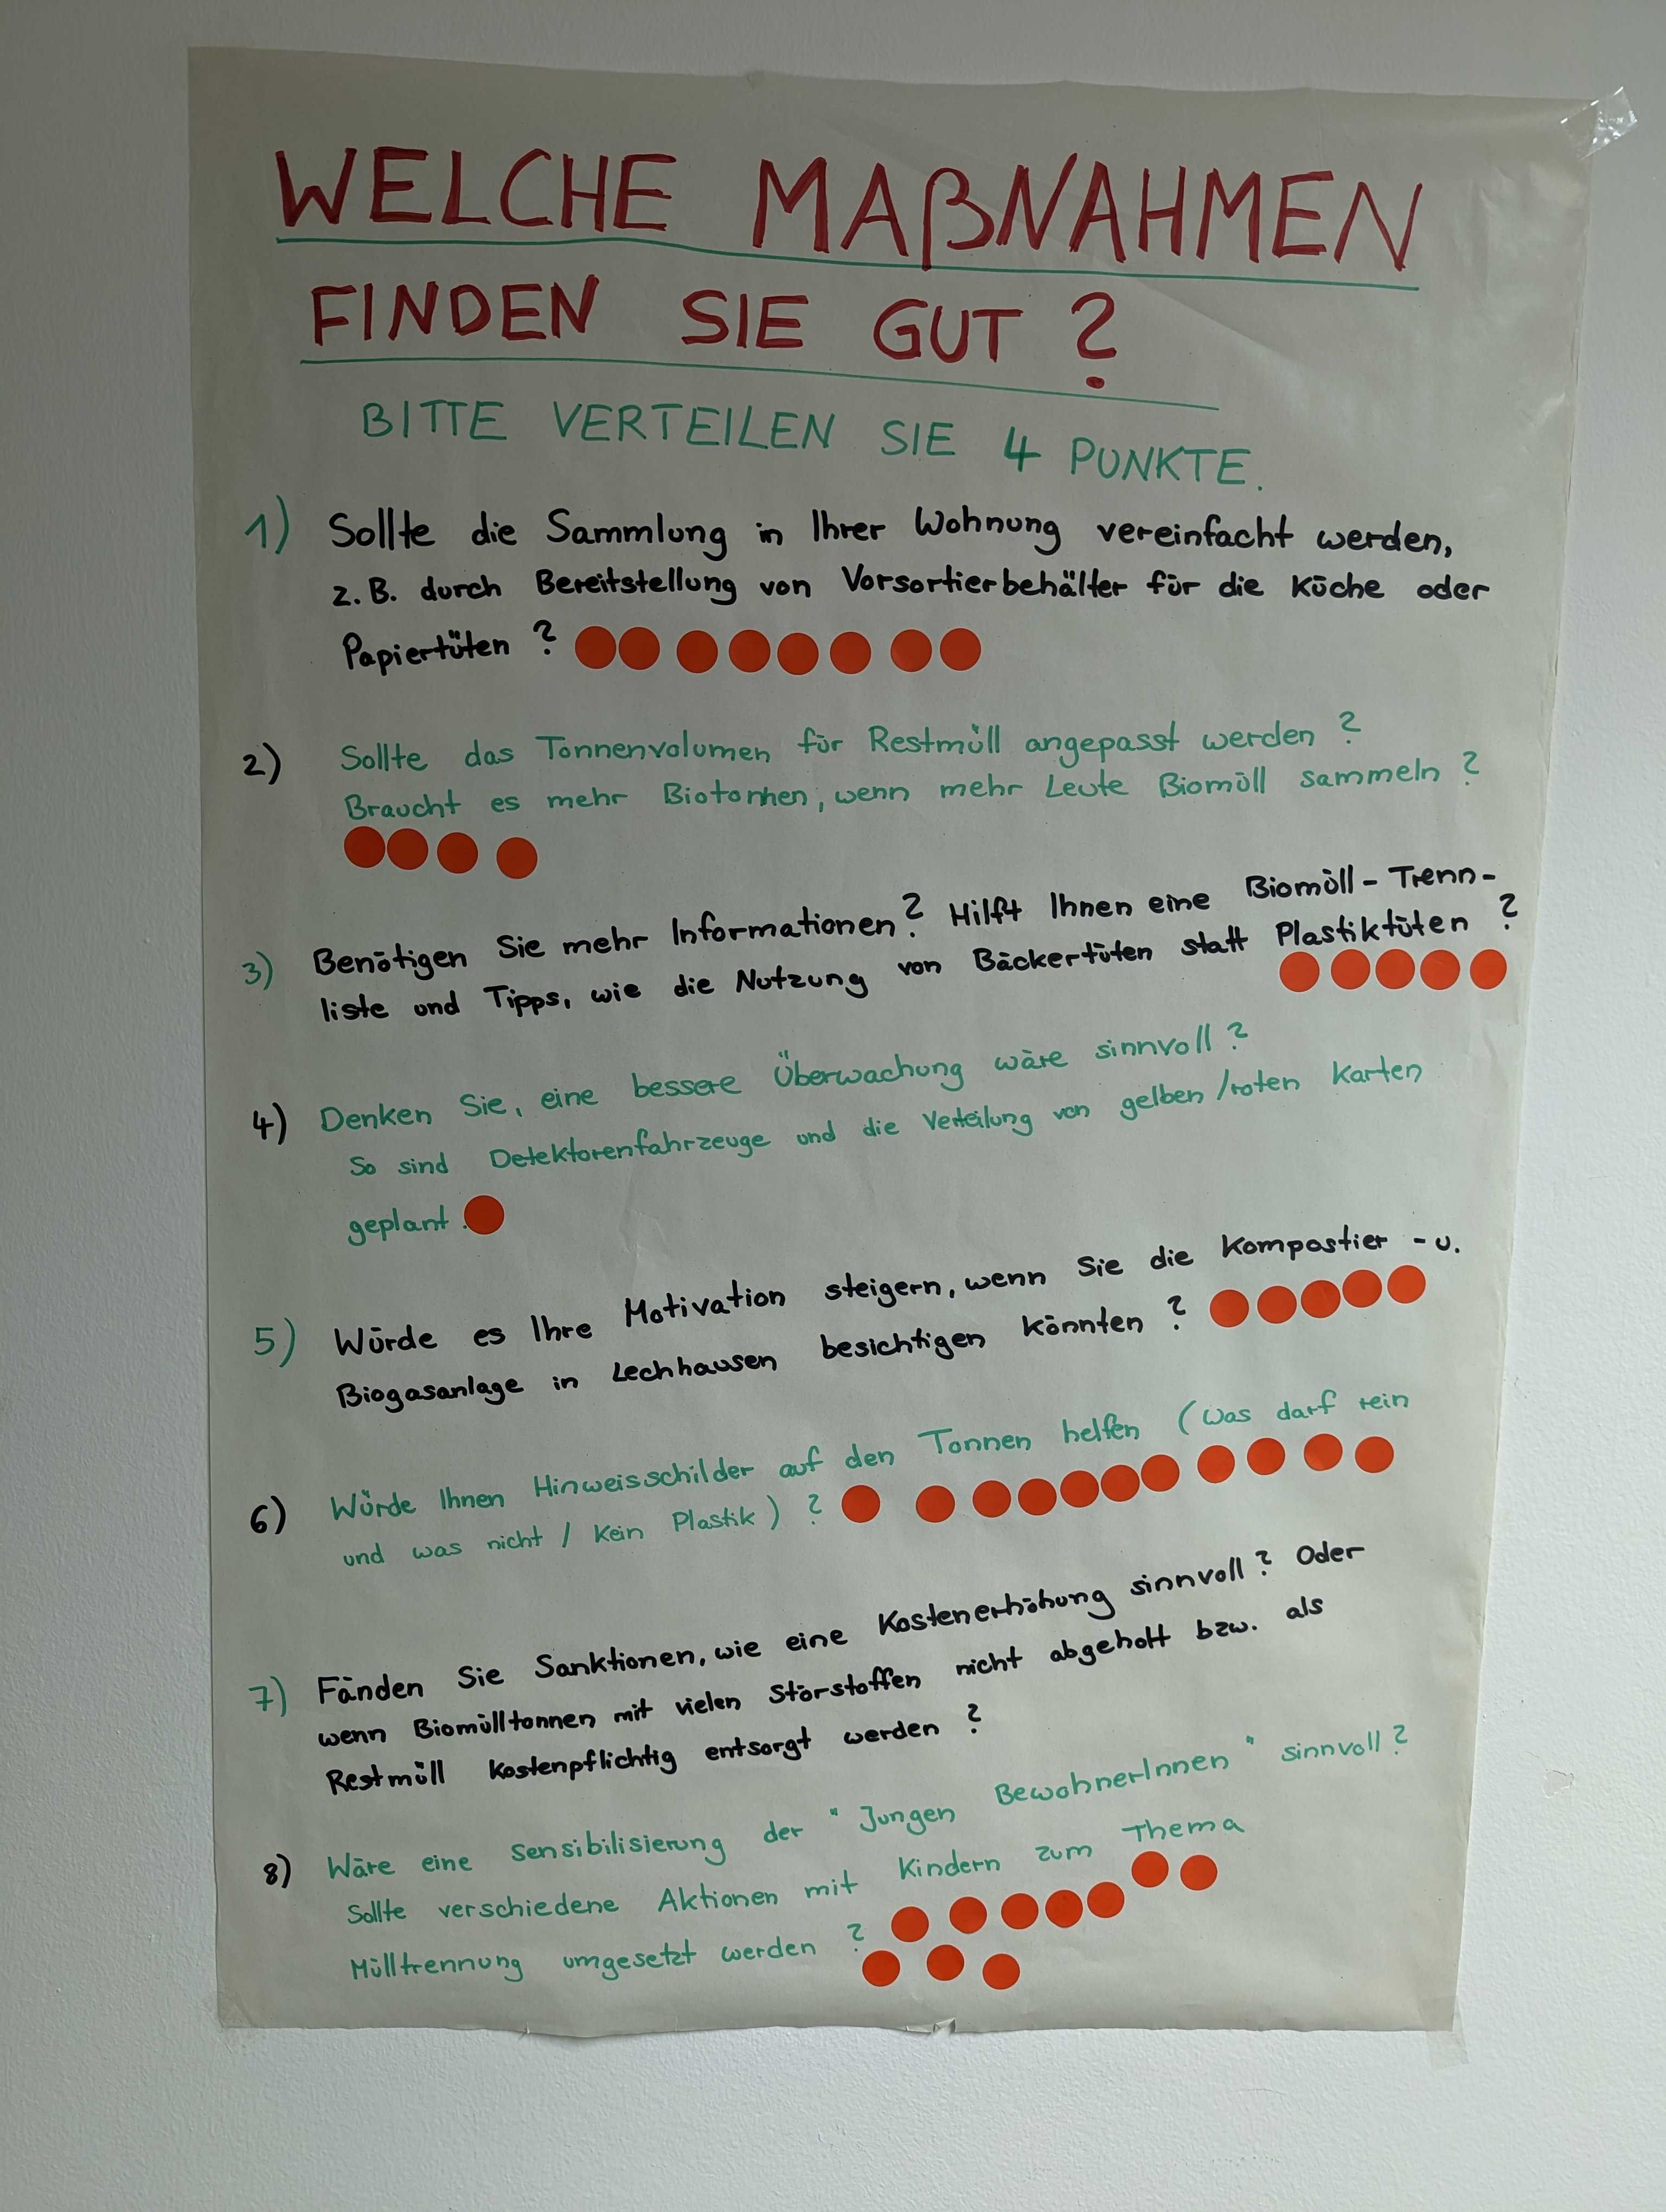 WELCHE MAßNAHMEN
FINDEN SIE GUT?
BITTE VERTEILEN SIE 4 PUNKTE.
1) Sollte die Sammlung in Ihrer Wohnung vereinfacht werden,
z.B. durch Bereitstellung von Vorsortierbehälter für die Küche oder
Papiertüten?
2) Sollte das Tonnenvolumen für Restmüll angepasst werden?
Braucht es mehr Biotonnen, wenn mehr Leute Biomüll sammeln?
3) Benötigen Sie mehr Informationen? Hilft Ihnen eine Biomüll-Trenn-
liste und Tipps, wie die Nutzung von Bäckertüten statt Plastiktüten?
4) Denken Sie, eine bessere Überwachung wäre sinnvoll?
So sind Detektorenfahrzeuge und die Verteilung von gelben/roten Karten
geplant.
5) Würde es Ihre Motivation steigern, wenn Sie die Kompostier-u.
Biogasanlage in Lechhausen besichtigen könnten?
6) Würde Ihnen Hinweisschilder auf den Tonnen helfen (was darf rein
und was nicht / Kein Plastik)?
7) Fänden Sie Sanktionen, wie eine Kostenerhöhung sinnvoll? Oder
wenn Biomülltonnen mit vielen Störstoffen nicht abgeholt bzw. als
Restmüll kostenpflichtig entsorgt werden?
8) Wäre eine Sensibilisierung der "Jungen BewohnerInnen" sinnvoll?
Sollte verschiedene Aktionen mit Kindern zum Thema
Mülltrennung umgesetzt werden?